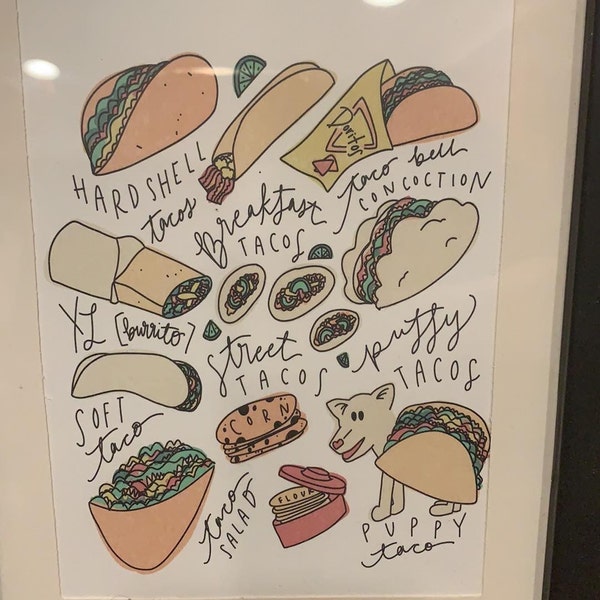 Doritos
HARDSHELL
tacos
breakfast
TACOS
taco bell
CONCOCTION
XL [burrito]
street
TACOS
puffy
TACOS
SOFT
taco
CORN
taco
SALAD
FLOUR
PUPPY
taco